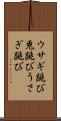 ウサギ跳び
兎跳びうさ
ぎ跳び